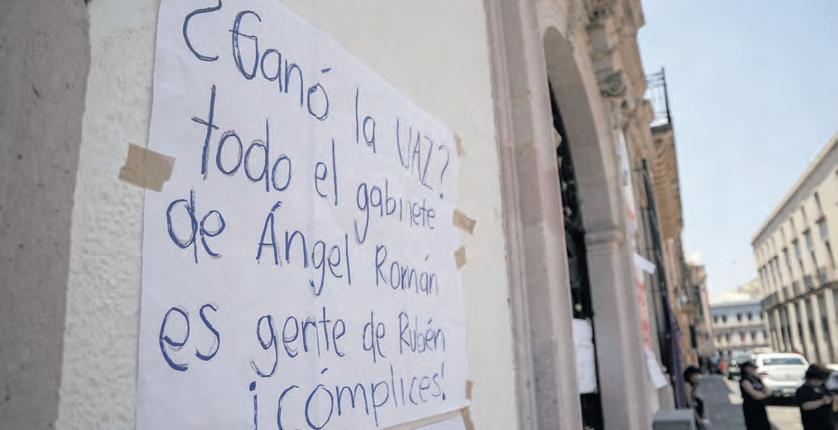 ¿Ganó la UAZ?
todo el gabinete
de Ángel Román
es gente de Rubén
¡cómplices!